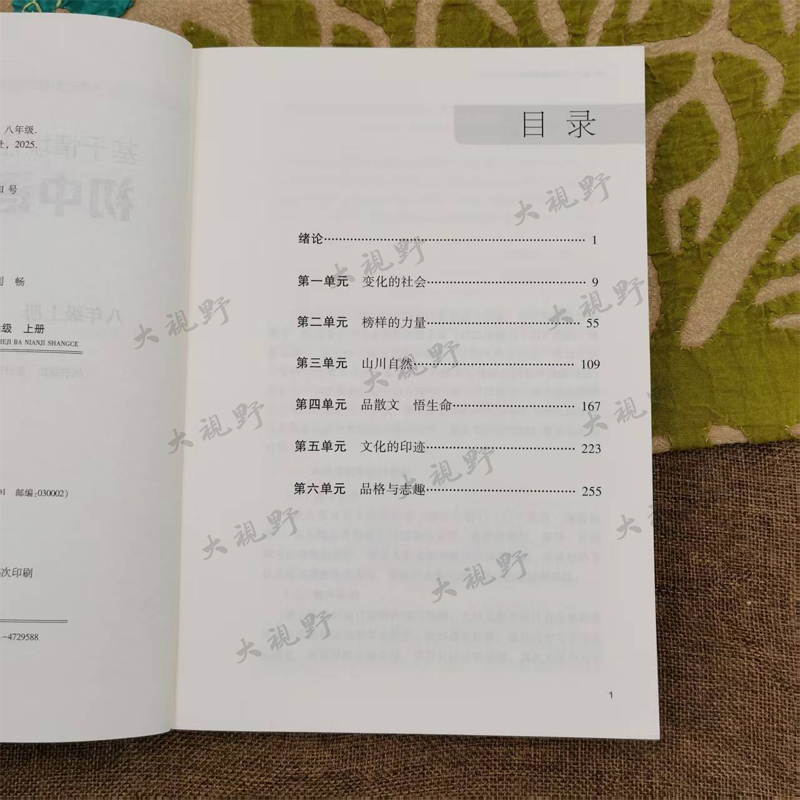 八年级.
社，2025.
号
畅
级 上册
IEJI BA NIANJI SHANGCE
01 邮编:030002)
次印刷
-4729588
基于情境
初中语
八年级上册
目录
绪论 1
第一单元 变化的社会 9
第二单元 榜样的力量 55
第三单元 山川自然 109
第四单元 品散文 悟生命 167
第五单元 文化的印迹 223
第六单元 品格与志趣 255
1
大视野
大视野
大视野
大视野
大视野
大视野
大视野
大视野
大视野